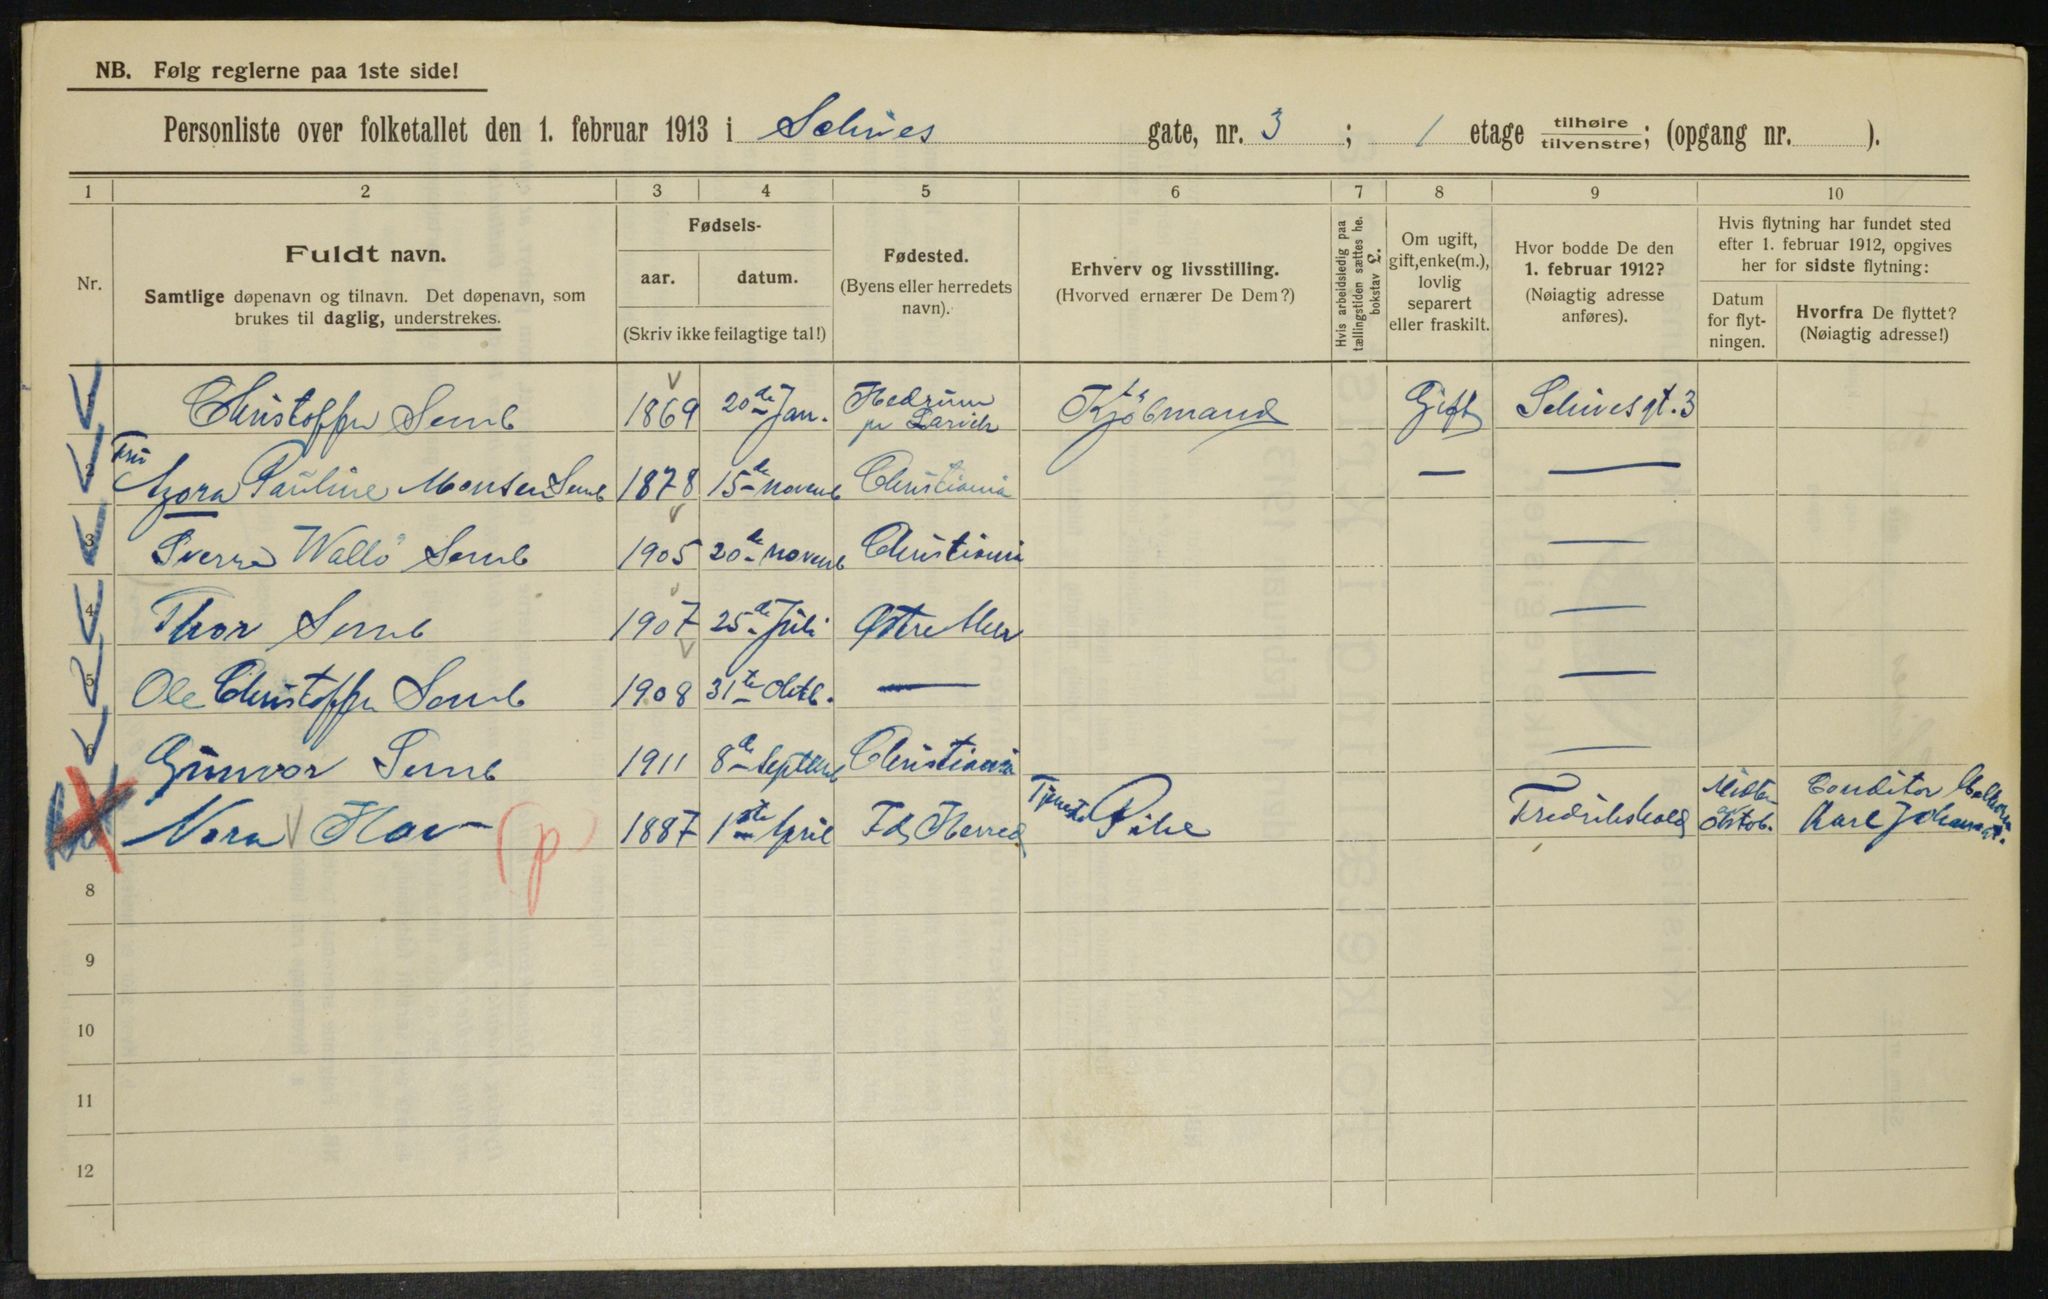 NB. Følg reglerne paa 1ste side!
Personliste over folketallet den 1. februar 1913 i Schives gate, nr. 3 ; 1 etage tilhøire tilvenstre; (opgang nr. ).
1 2 3 4 5 6 7 8 9 10
Nr.
Fuldt navn.
Samtlige døpenavn og tilnavn. Det døpenavn, som
brukes til daglig, understrekes.
Fødsels-
aar. datum.
(Skriv ikke feilagtige tal!)
Fødested.
(Byens eller herredets
navn).
Erhverv og livsstilling.
(Hvorved ernærer De Dem?)
Hvis arbeidsledig paa
tællingstiden sættes he.
bokstav L.
Om ugift,
gift, enke(m.),
lovlig
separert
eller fraskilt.
Hvor bodde De den
1. februar 1912?
(Nøiagtig adresse
anføres).
Hvis flytning har fundet sted
efter 1. februar 1912, opgives
her for sidste flytning:
Datum
for flyt-
ningen.
Hvorfra De flyttet?
(Nøiagtig adresse!)
Christoffer Semb 1869 20de Jan. Hedrum pr Larvik Kjøbmand Gift Schivesgt. 3
2 Fru Azora Pauline Monsen Semb 1878 15de novemb Christiania — —
3 Sverre Wallö Semb 1905 20de novemb Christiania —
4 Thor Semb 1907 25de Juli Østre Aker —
5 Ole Christoffer Semb 1908 31te Oktb. — —
6 Gunvor Semb 1911 8de Septemb Christiania —
Nora Hov (p) 1887 1ste April Ids Herred Tjeneste Pike Fredrikshald Midten Oktob. Conditor Karl Johansgt.
8
9
10
11
12